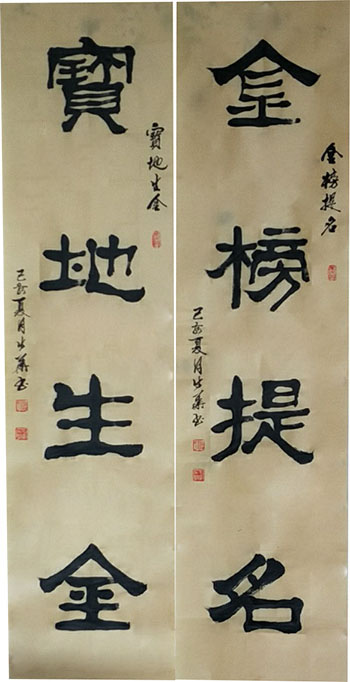 金榜提名
金榜提名
己亥夏月
寶地生金
寶地生金
己亥夏月